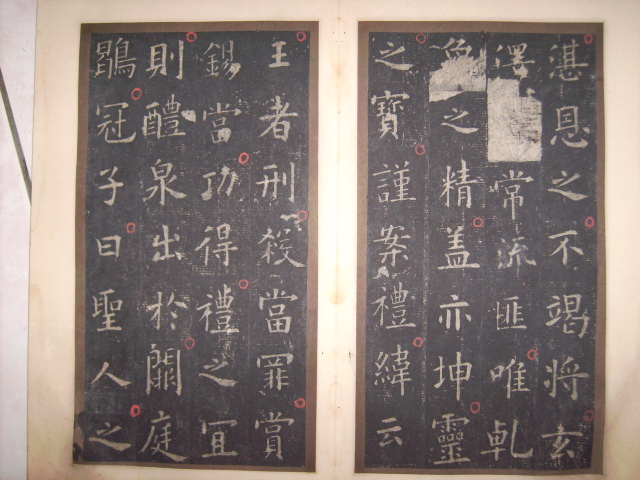 湛恩之不竭將玄
澤常流匪唯乹
之精盖亦坤靈
之寶謹案禮緯云
王者刑殺當罪賞
錫當功得禮之宜
則醴泉出於闕庭
鶡冠子曰聖人之